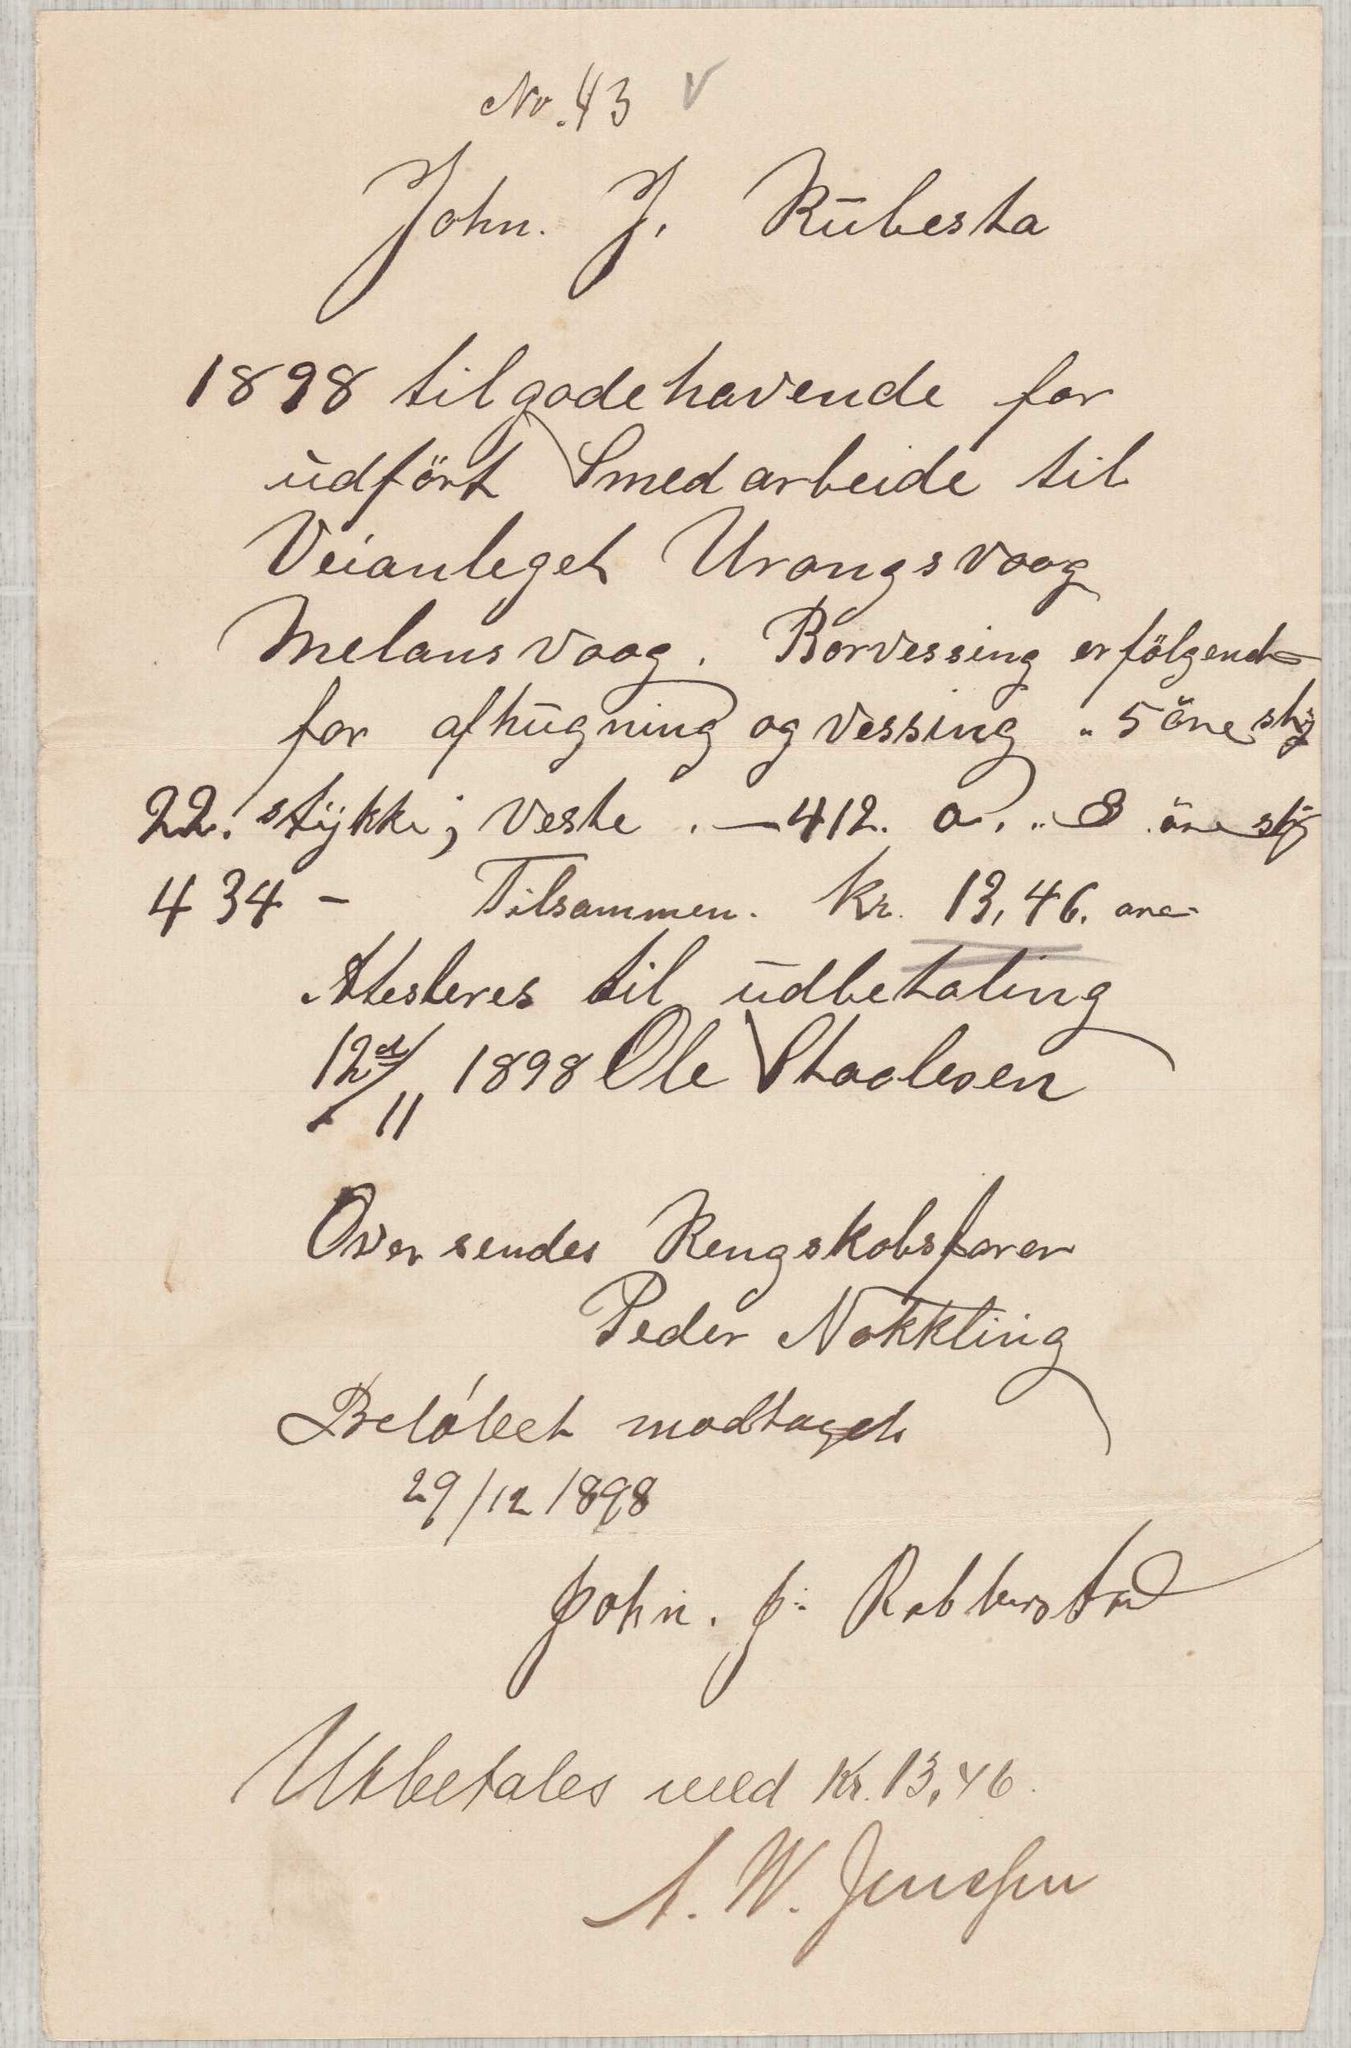 No. 43 V
John. J. Rübesta
1898 tilgodehavende for
üdfört Smedarbeide til
Veianleget Urangsvaag
Melansvaag. Borvessing er fölgende
for afhügning og vessing " 5 öre stÿ
22. stÿkke; veste . — 412. a. .. 3 öre stÿ
434 – Tilsammen. Kr. 13,46. öre
Attesteres til üdbetaling
12te/11 1898 Ole Staalesen
Oversendes Rengskabsfører
Peder Nøkkling
Beløbet modtaget
29/12 1898
John. J. Robberstad
Utbetales med Kr. 13,46.
A. W. Jenssen